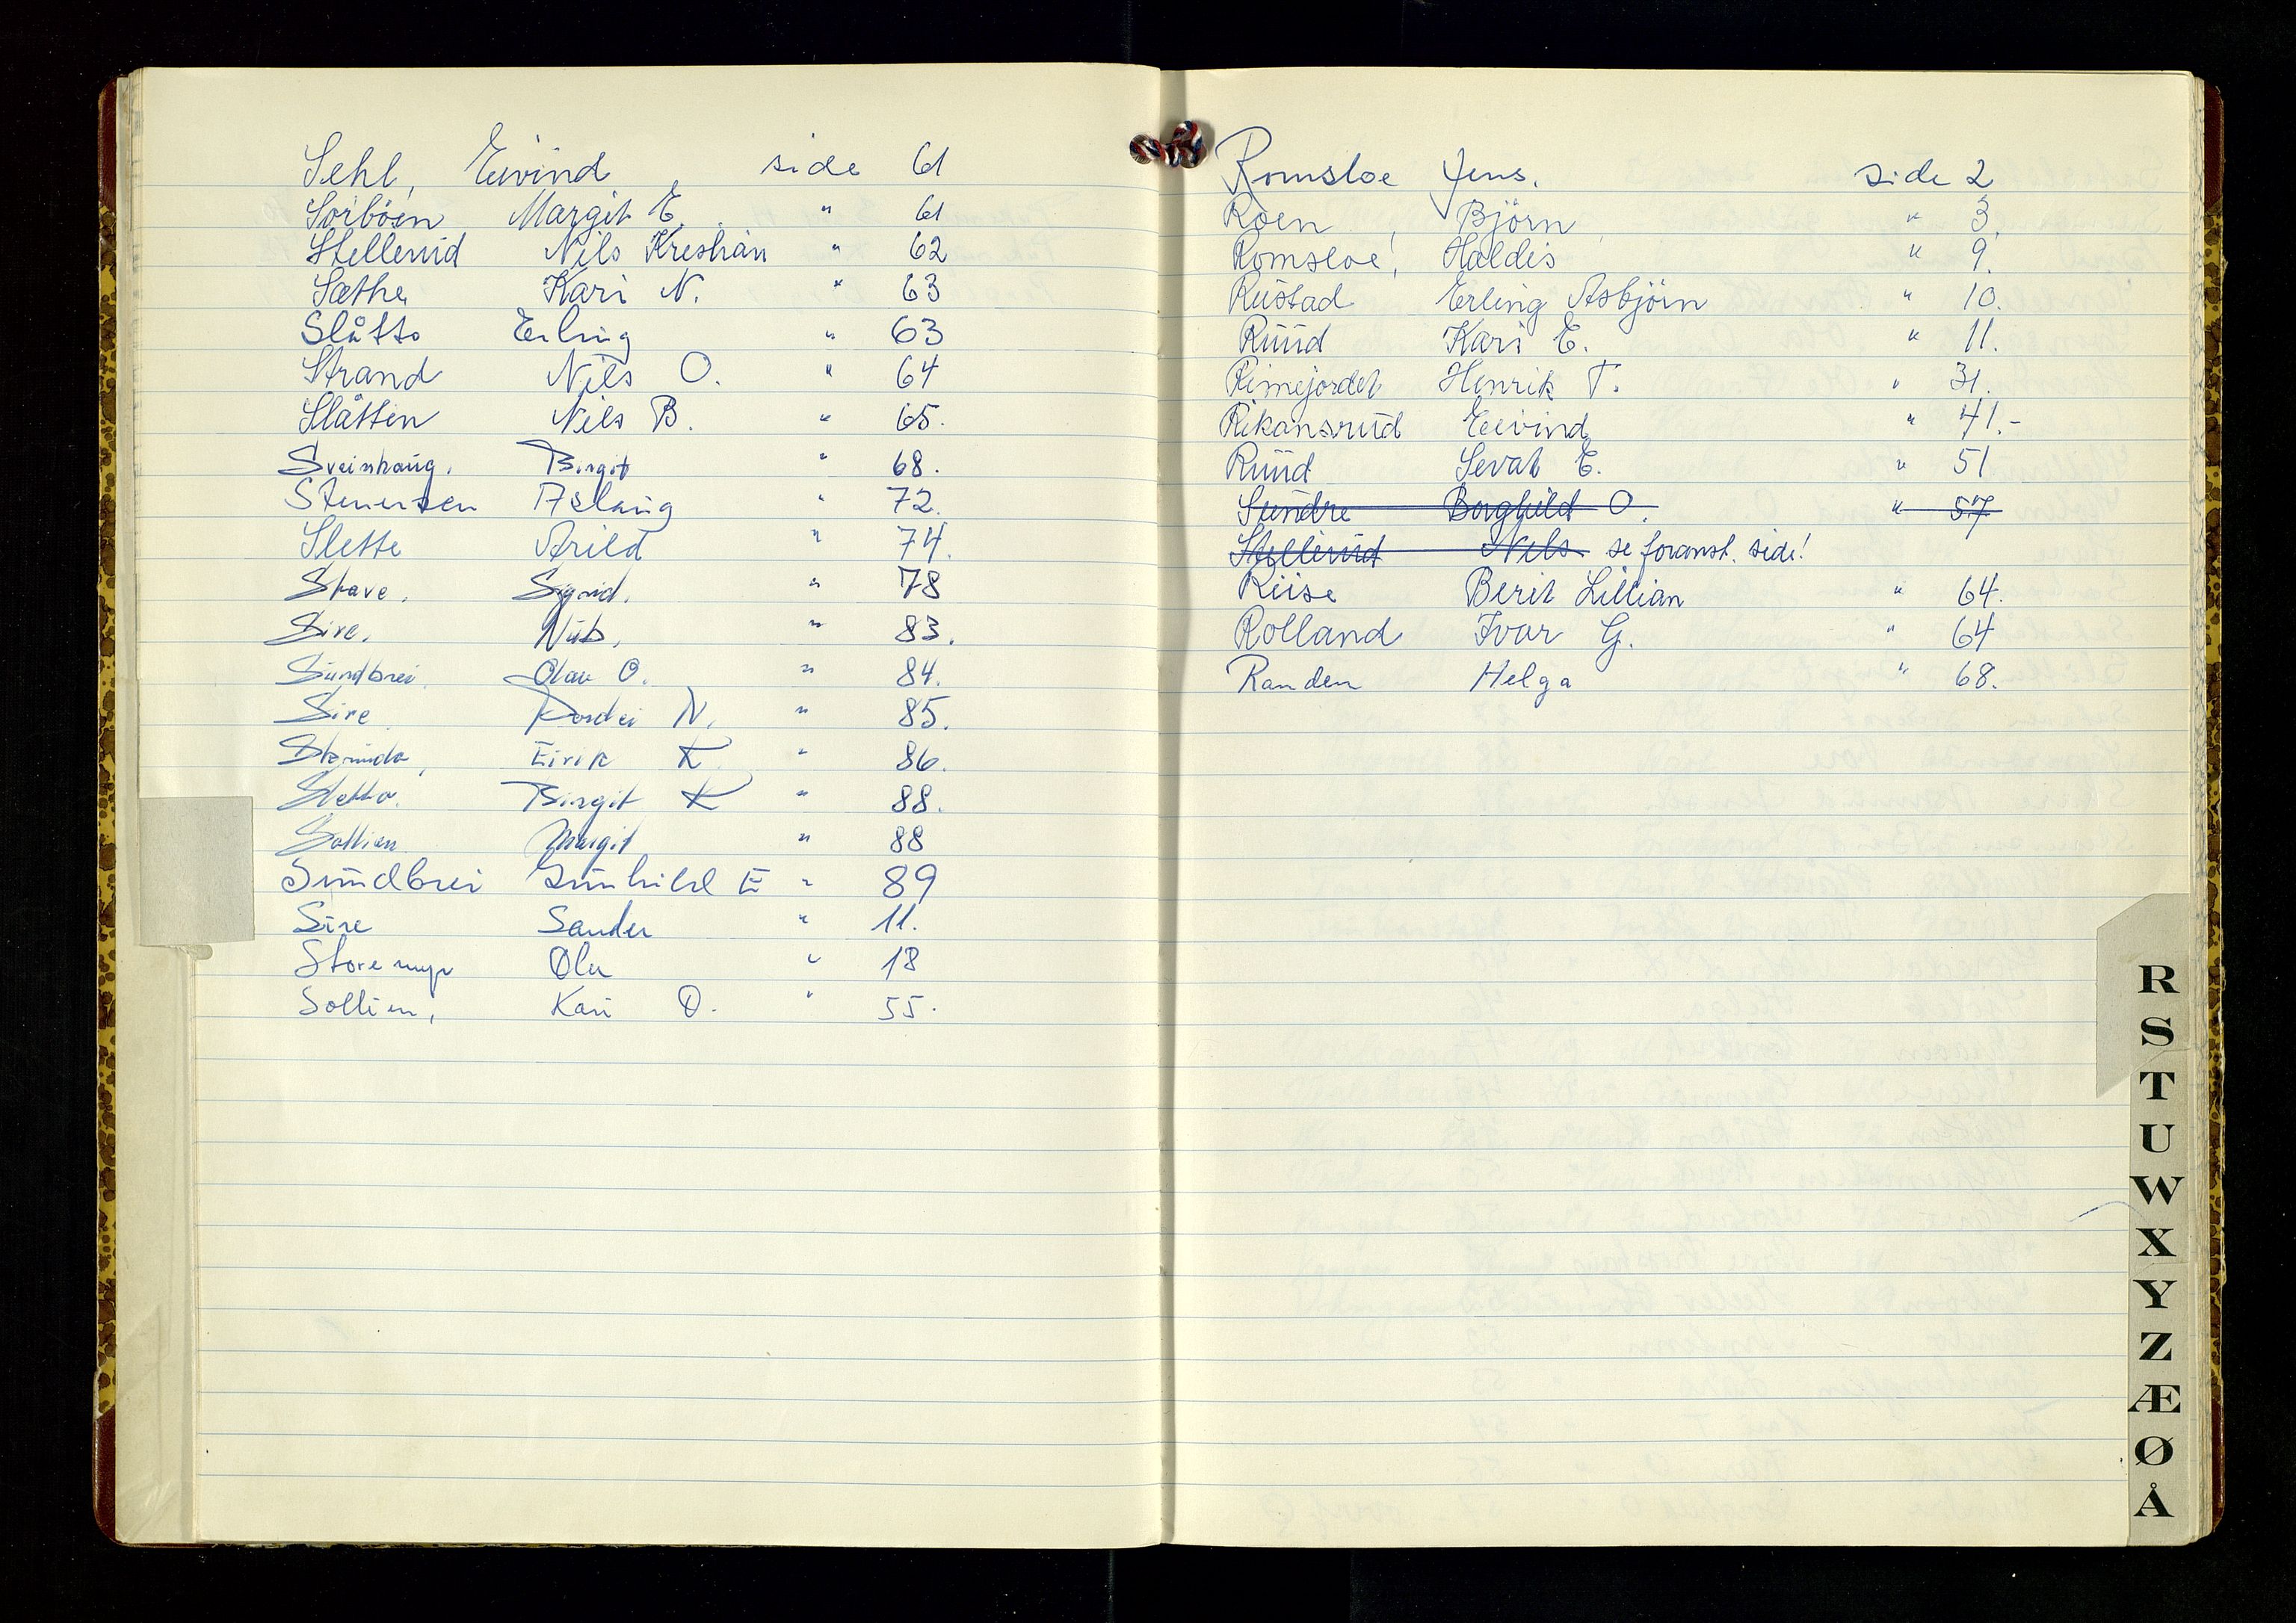 Sehl, Eivind side 61
Sorböen Margit E. " 61
Stellerud Nils Kristian " 62
Sæthe Kari N. " 63
Slåtto Erling " 63
Strand Nils O. " 64
Slåtten Nils B. " 65.
Sveinhaug. Birgit " 68.
Stenersen Aslaug " 72.
Slette Arild " 74.
Stave. Sigrid. " 78
Sire. Nils. " 83.
Sundbrei Olav O. " 84.
Sire N. " 85.
Eirik K " 86.
Sletto. Birgit K " 88.
Sollien Margit " 88
Sundbrei Gunhild E " 89
Sire Sander " 11.
Storemyr Ola " 18
Sollien, Kari O. " 55.
Romsloe Jens. side 2
Roen, Björn " 3.
Romsloe, Haldis " 9.
Rustad Erling Asbjörn " 10.
Ruud Kari E. " 11.
Rimejordet Henrik T. " 31.
Rikansrud Eivind " 41.-
Ruud Sevat E. " 51
Sundre Borghild O. " 57
Stellerud Nils se foranst. side!
Riise Berit Lillian " 64.
Rolland Ivar G. " 64
Randen Helga " 68.
R
S
T
U
W
X
Y
Z
Æ
Ø
Å